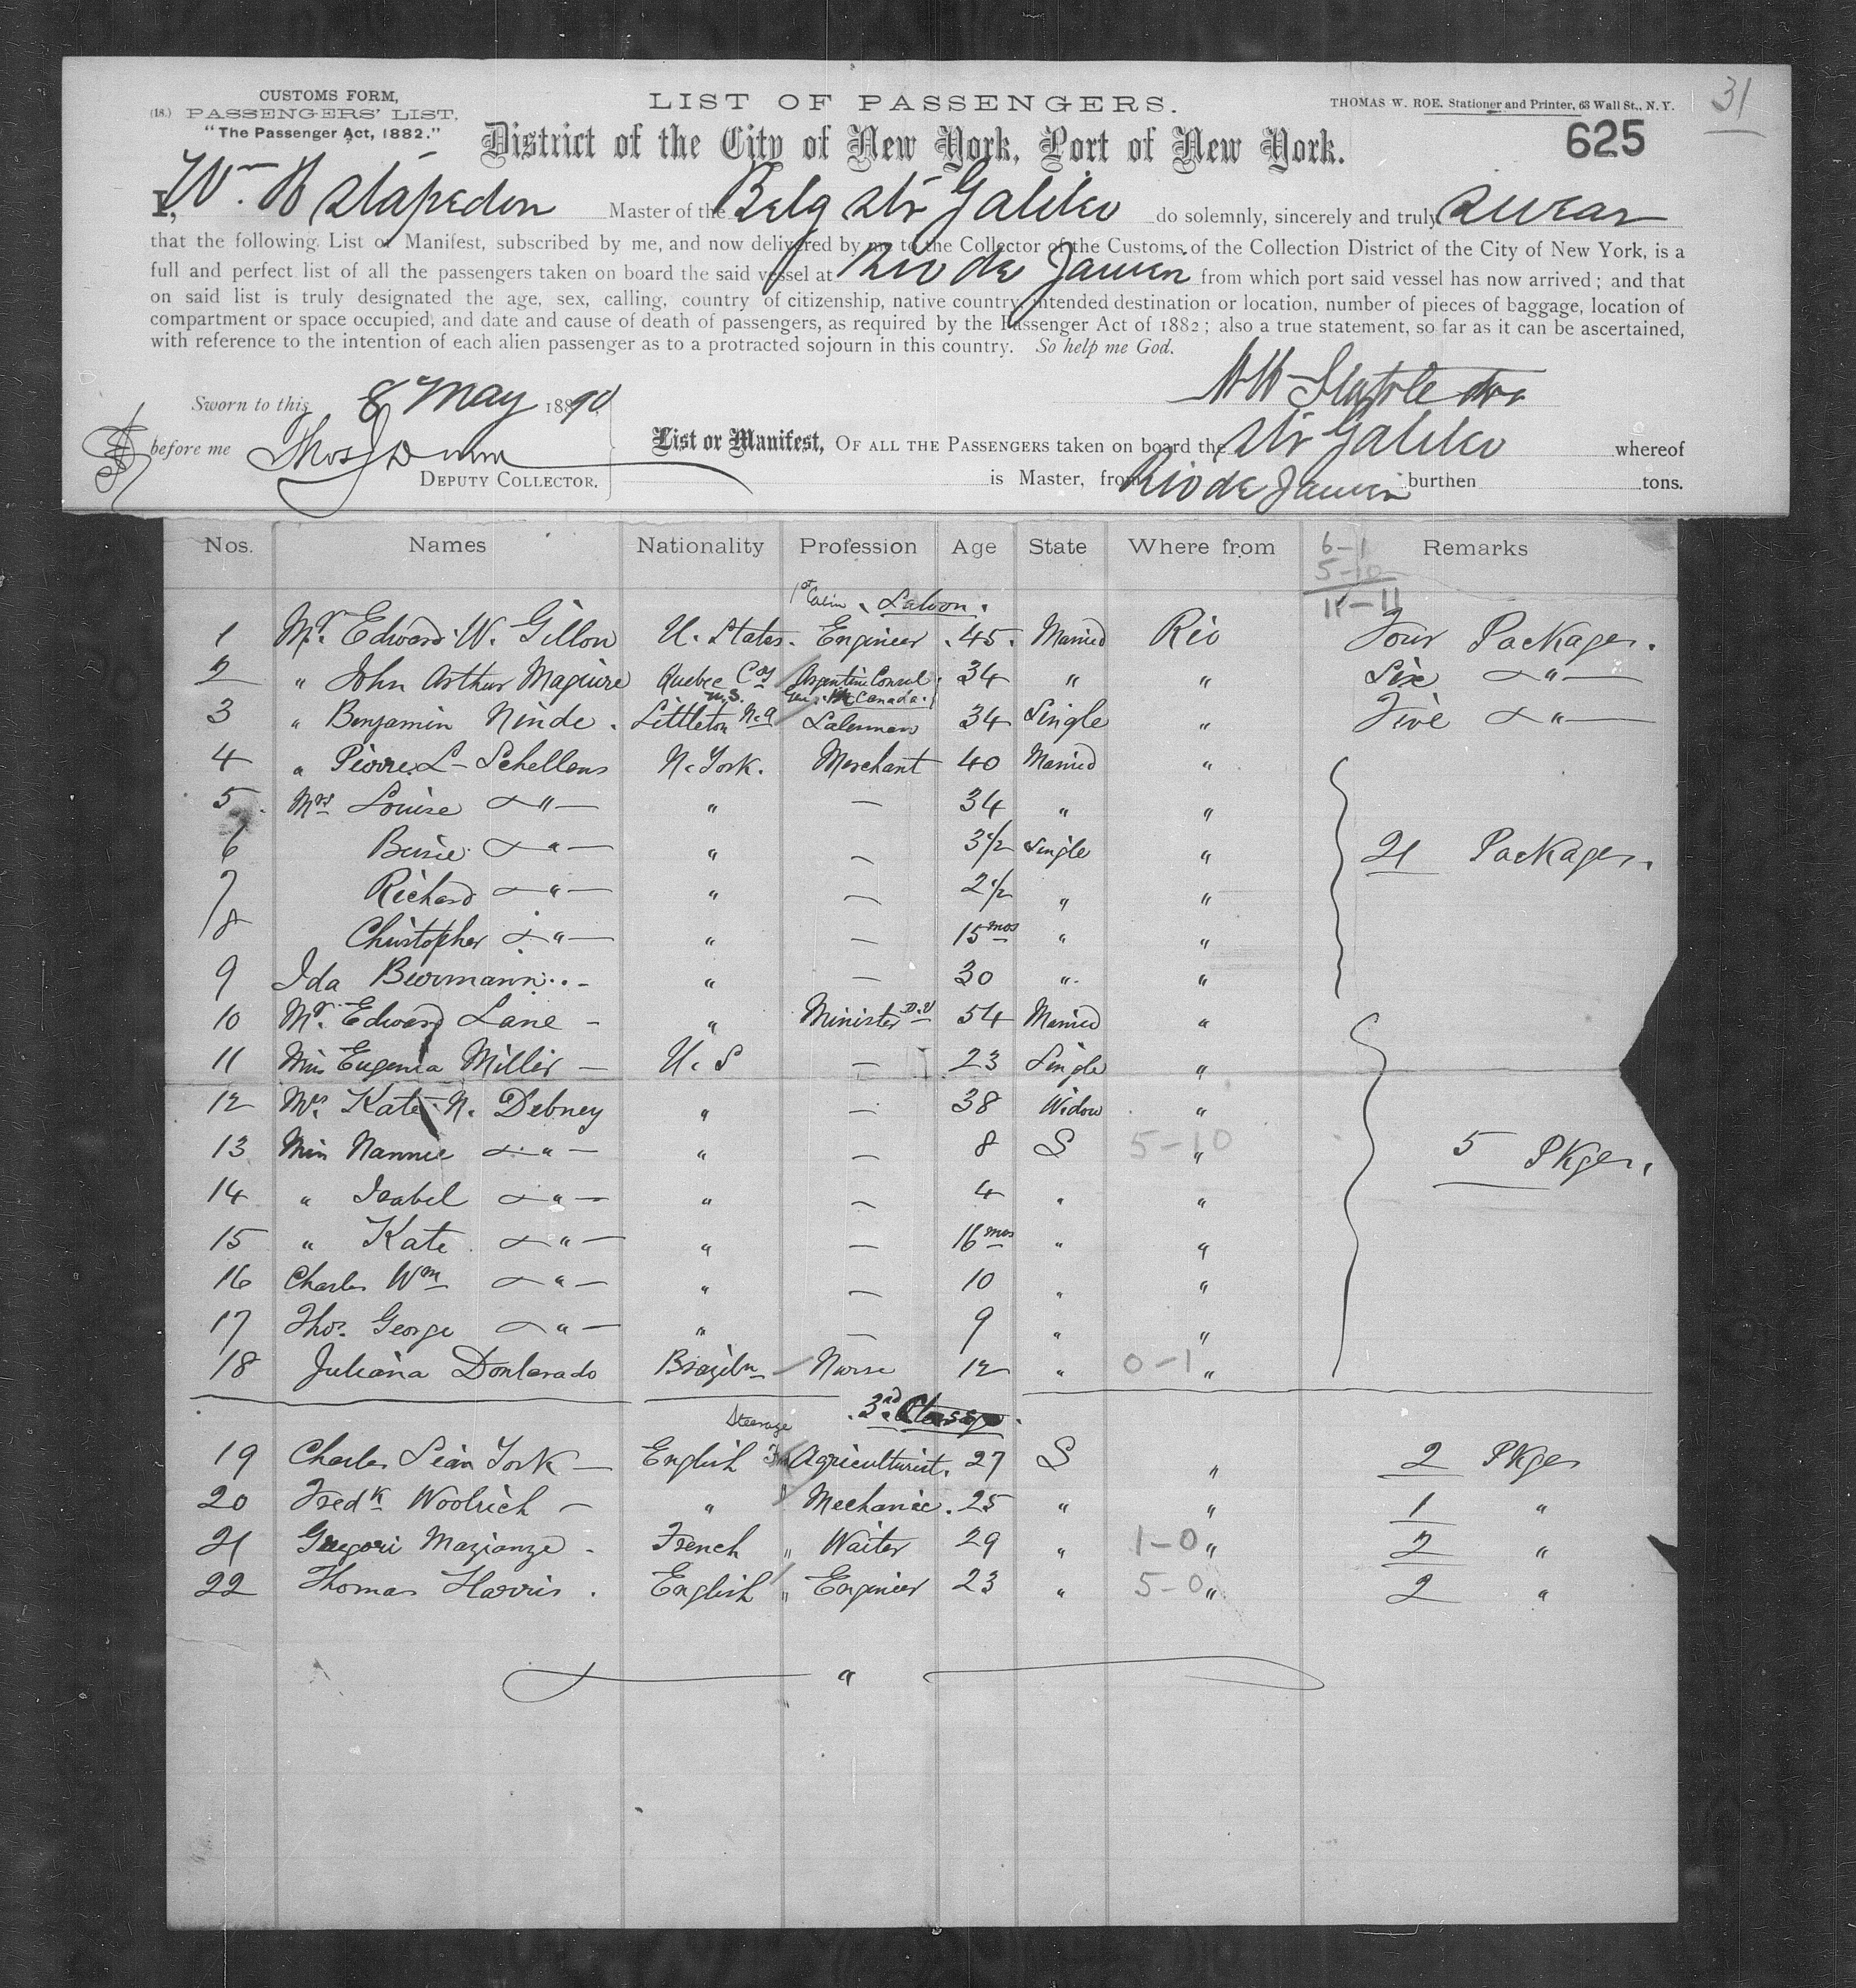 CUSTOMS FORM,
(18.) PASSENGERS' LIST.
"The Passenger Act, 1882."
LIST OF PASSENGERS.
THOMAS W. ROE, Stationer and Printer, 63 Wall St., N. Y.
31
625
District of the City of New York, Port of New York.
I, Wm. H Stapedon Master of the Belg Str Galileo do solemnly, sincerely and truly swear
that the following List or Manifest, subscribed by me, and now delivered by me to the Collector of the Customs of the Collection District of the City of New York, is a
full and perfect list of all the passengers taken on board the said vessel at Rio de Janeiro from which port said vessel has now arrived; and that
on said list is truly designated the age, sex, calling, country of citizenship, native country, intended destination or location, number of pieces of baggage, location of
compartment or space occupied, and date and cause of death of passengers, as required by the Passenger Act of 1882; also a true statement, so far as it can be ascertained,
with reference to the intention of each alien passenger as to a protracted sojourn in this country. So help me God.
Sworn to this 8 May 1890
before me Thos J Dunn
DEPUTY COLLECTOR.
List or Manifest, OF ALL THE PASSENGERS taken on board the Str Galileo whereof
is Master, from Rio de Janeiro burthen tons.
Nos. Names Nationality Profession Age State Where from Remarks
6-1
5-10
11-11
1st Cabin Saloon.
1 Mr. Edward W. Gillon U. States. Engineer 45. Married Rio Four Packages.
2 " John Arthur Maguire Quebec Argentine Consul 34 " " Six "
Gen. Canada.
3 " Benjamin Ninde. Littleton Salesman 34 Single " Five "
4 " Pierre L. Schellens N. York. Merchant 40 Married "
5 Mrs Louise " " — 34 " "
6 " " — 3 1/2 Single " 21 Packages.
7 Richard " " — 2 1/2 " "
8 Christopher " " — 15 mos " "
9 Ida Biermann " — 30 " "
10 Mr. Edward Lane - " Minister D.D 54 Married "
11 Miss Eugenia Miller — U. S — 23 Single "
12 Mrs. Kate N. Debney " — 38 Widow "
13 Miss Nannie " " — 8 S 5-10 " 5 Pkges.
14 " Isabel " " — 4 " "
15 " Kate " " — 16 mos " "
16 Charles Wm " " — 10 " "
17 Thos. George " " — 9 " "
18 Juliana Braziln Nurse 12 " 0-1 "
Steerage 3rd Class.
19 Charles York — English Agriculturist. 27 S " 2 Pkges
20 Fredk Woolrich — " Mechanic. 25 " " 1 "
21 Gregori French " Waiter 29 " 1-0 " 2 "
22 Thomas Harris. English " Engineer 23 " 5-0 " 2 "
"